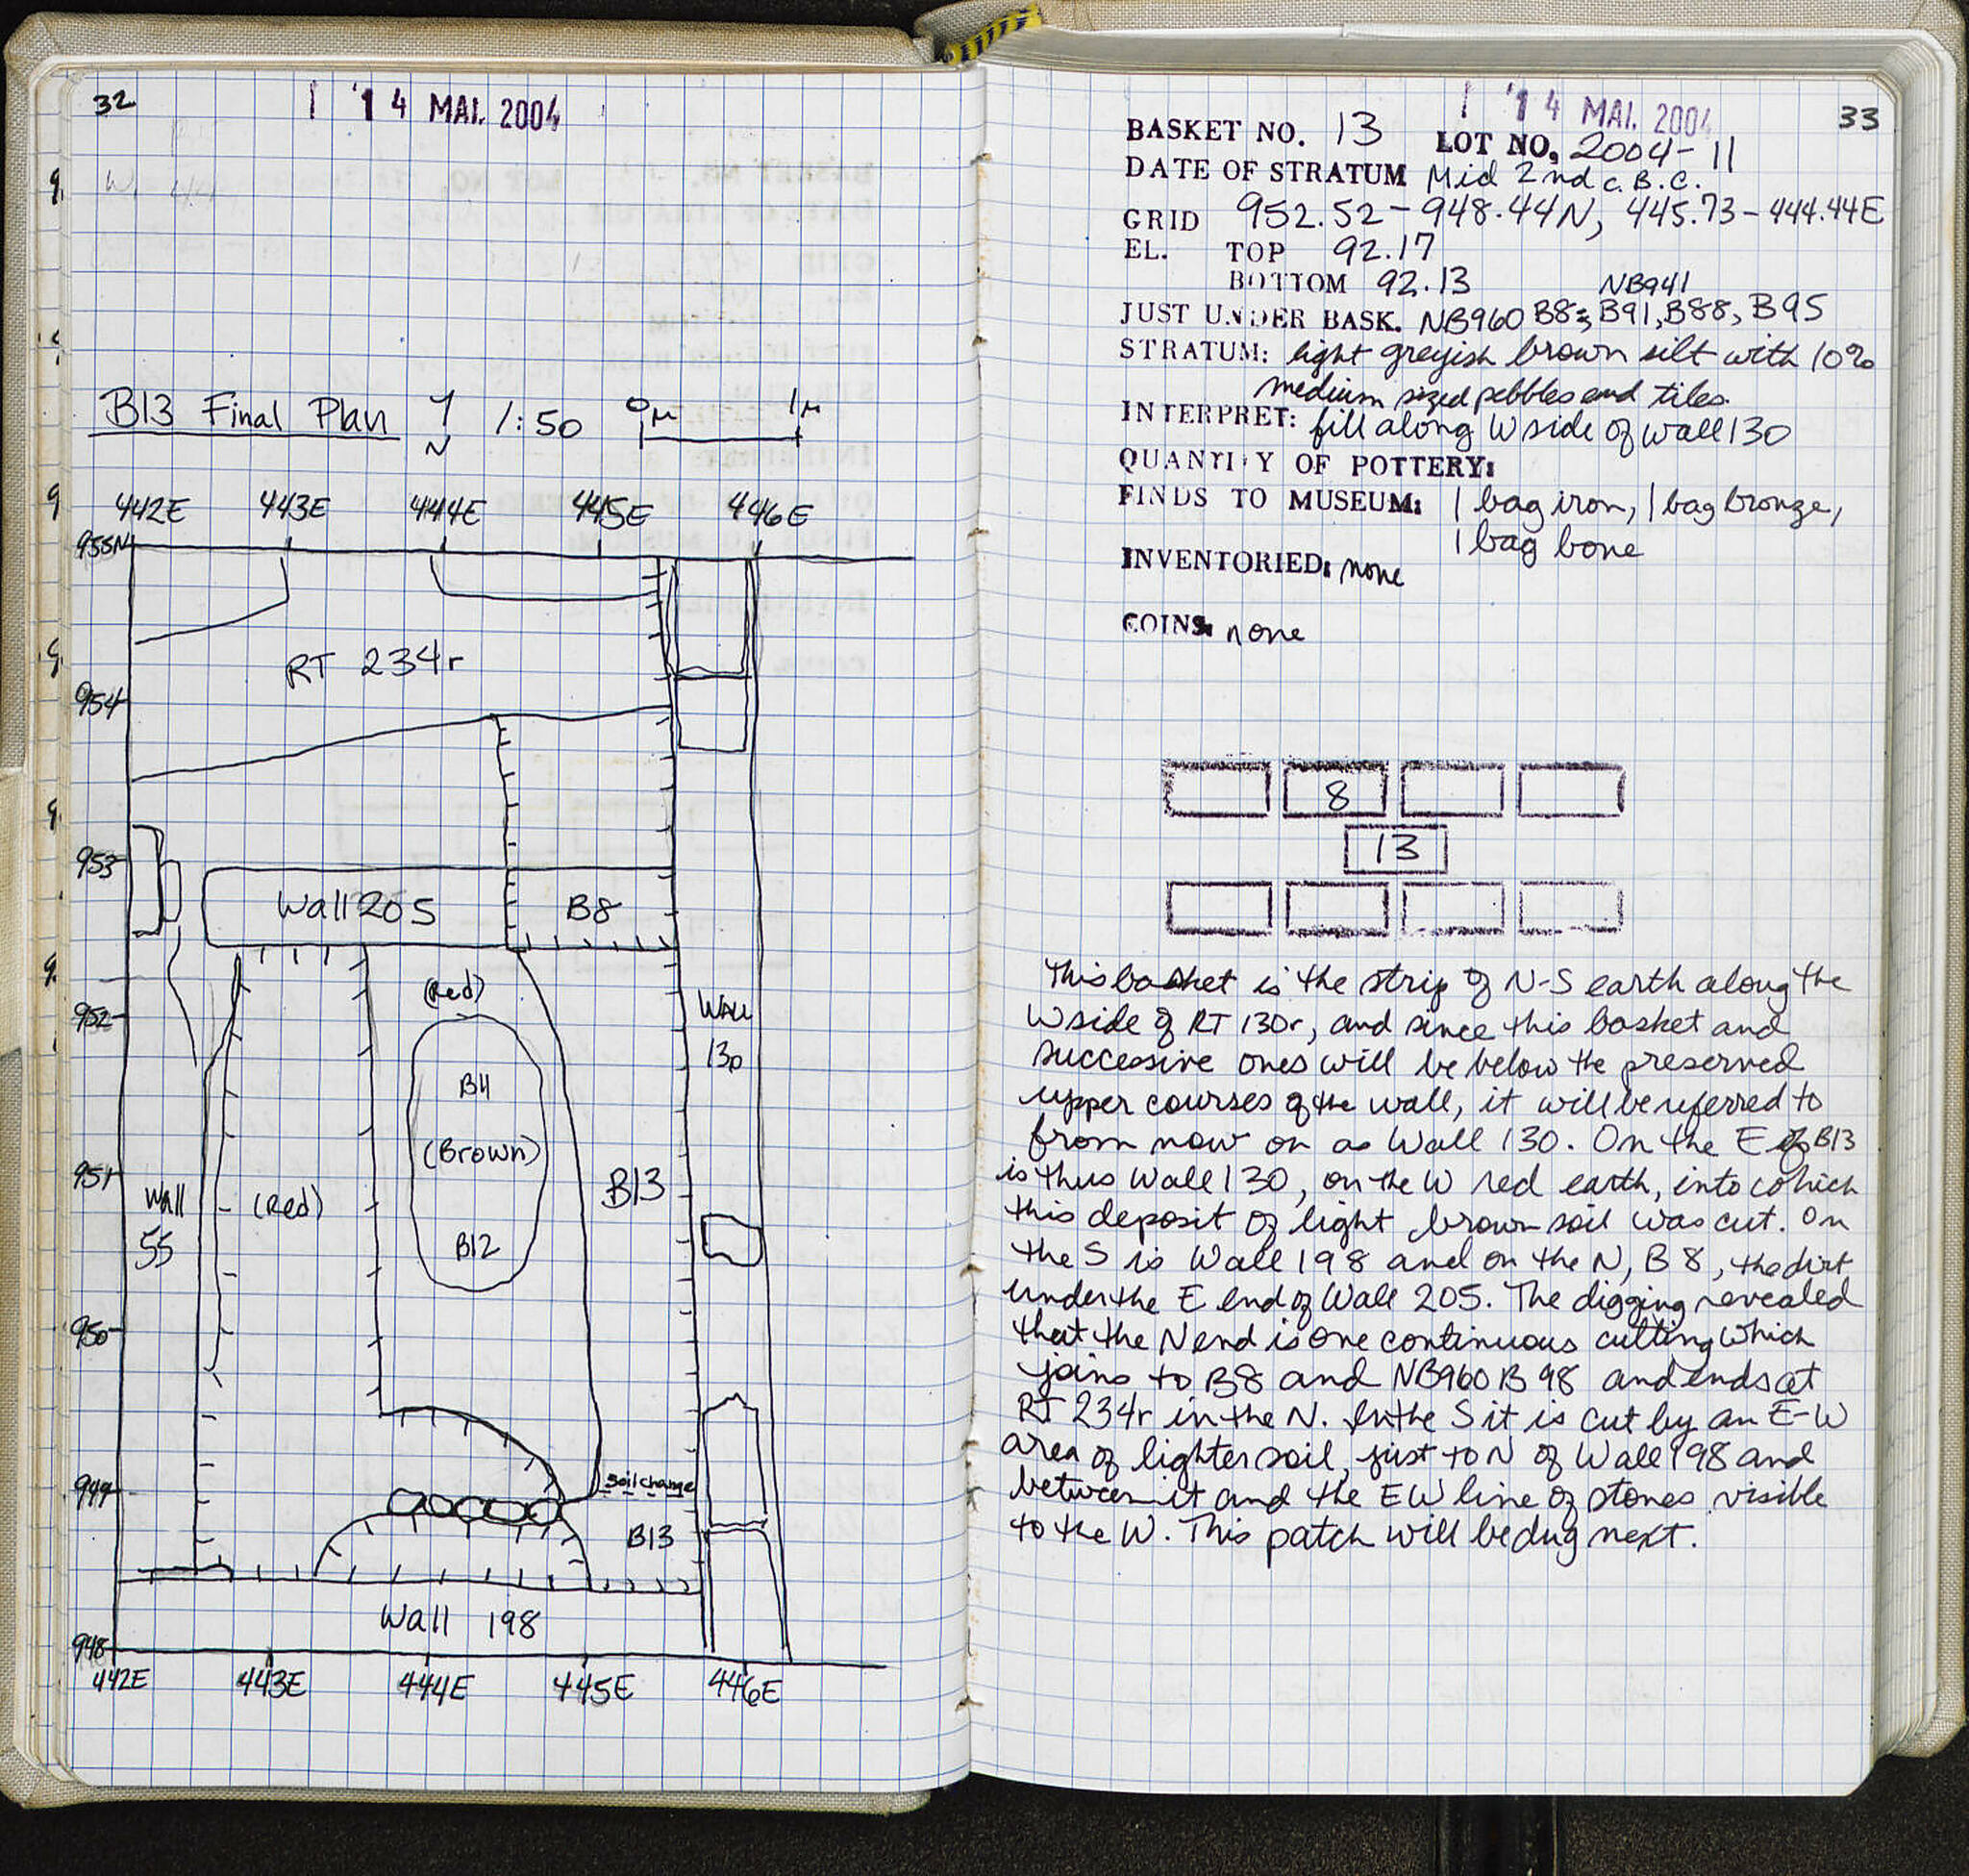 32
14 MAI. 2004
B13 Final Plan N 1:50 0M 1M
442E 443E 444E 445E 446E
955N
RT 234r
954
953
Wall 205 B8
(Red)
952
Wall
130
B11
(Brown)
951
B13
Wall
55
(Red)
B12
950
949
soil change
B13
Wall 198
948
442E 443E 444E 445E 446E
14 MAI. 2004
33
BASKET NO. 13 LOT NO. 2004-11
DATE OF STRATUM Mid 2nd c. B.C.
GRID 952.52-948.44N, 445.73-444.44E
EL. TOP 92.17
BOTTOM 92.13 NB941
JUST UNDER BASK. NB960 B83, B91, B88, B95
STRATUM: light greyish brown silt with 10%
medium sized pebbles and tiles.
INTERPRET: fill along W side of wall 130
QUANTITY OF POTTERY:
FINDS TO MUSEUM: 1 bag iron, 1 bag bronze,
1 bag bone
INVENTORIED: none
COINS: none
8
13
This basket is the strip of N-S earth along the
W side of RT 130r, and since this basket and
successive ones will be below the preserved
upper courses of the wall, it will be referred to
from now on as Wall 130. On the E of B13
is thus Wall 130, on the W red earth, into which
this deposit of light brown soil was cut. On
the S is Wall 198 and on the N, B8, the dirt
under the E end of Wall 205. The digging revealed
that the N end is one continuous cutting which
joins to B8 and NB960 B98 and ends at
RT 234r in the N. In the S it is cut by an E-W
area of lighter soil, just to N of Wall 198 and
between it and the EW line of stones visible
to the W. This patch will be dug next.